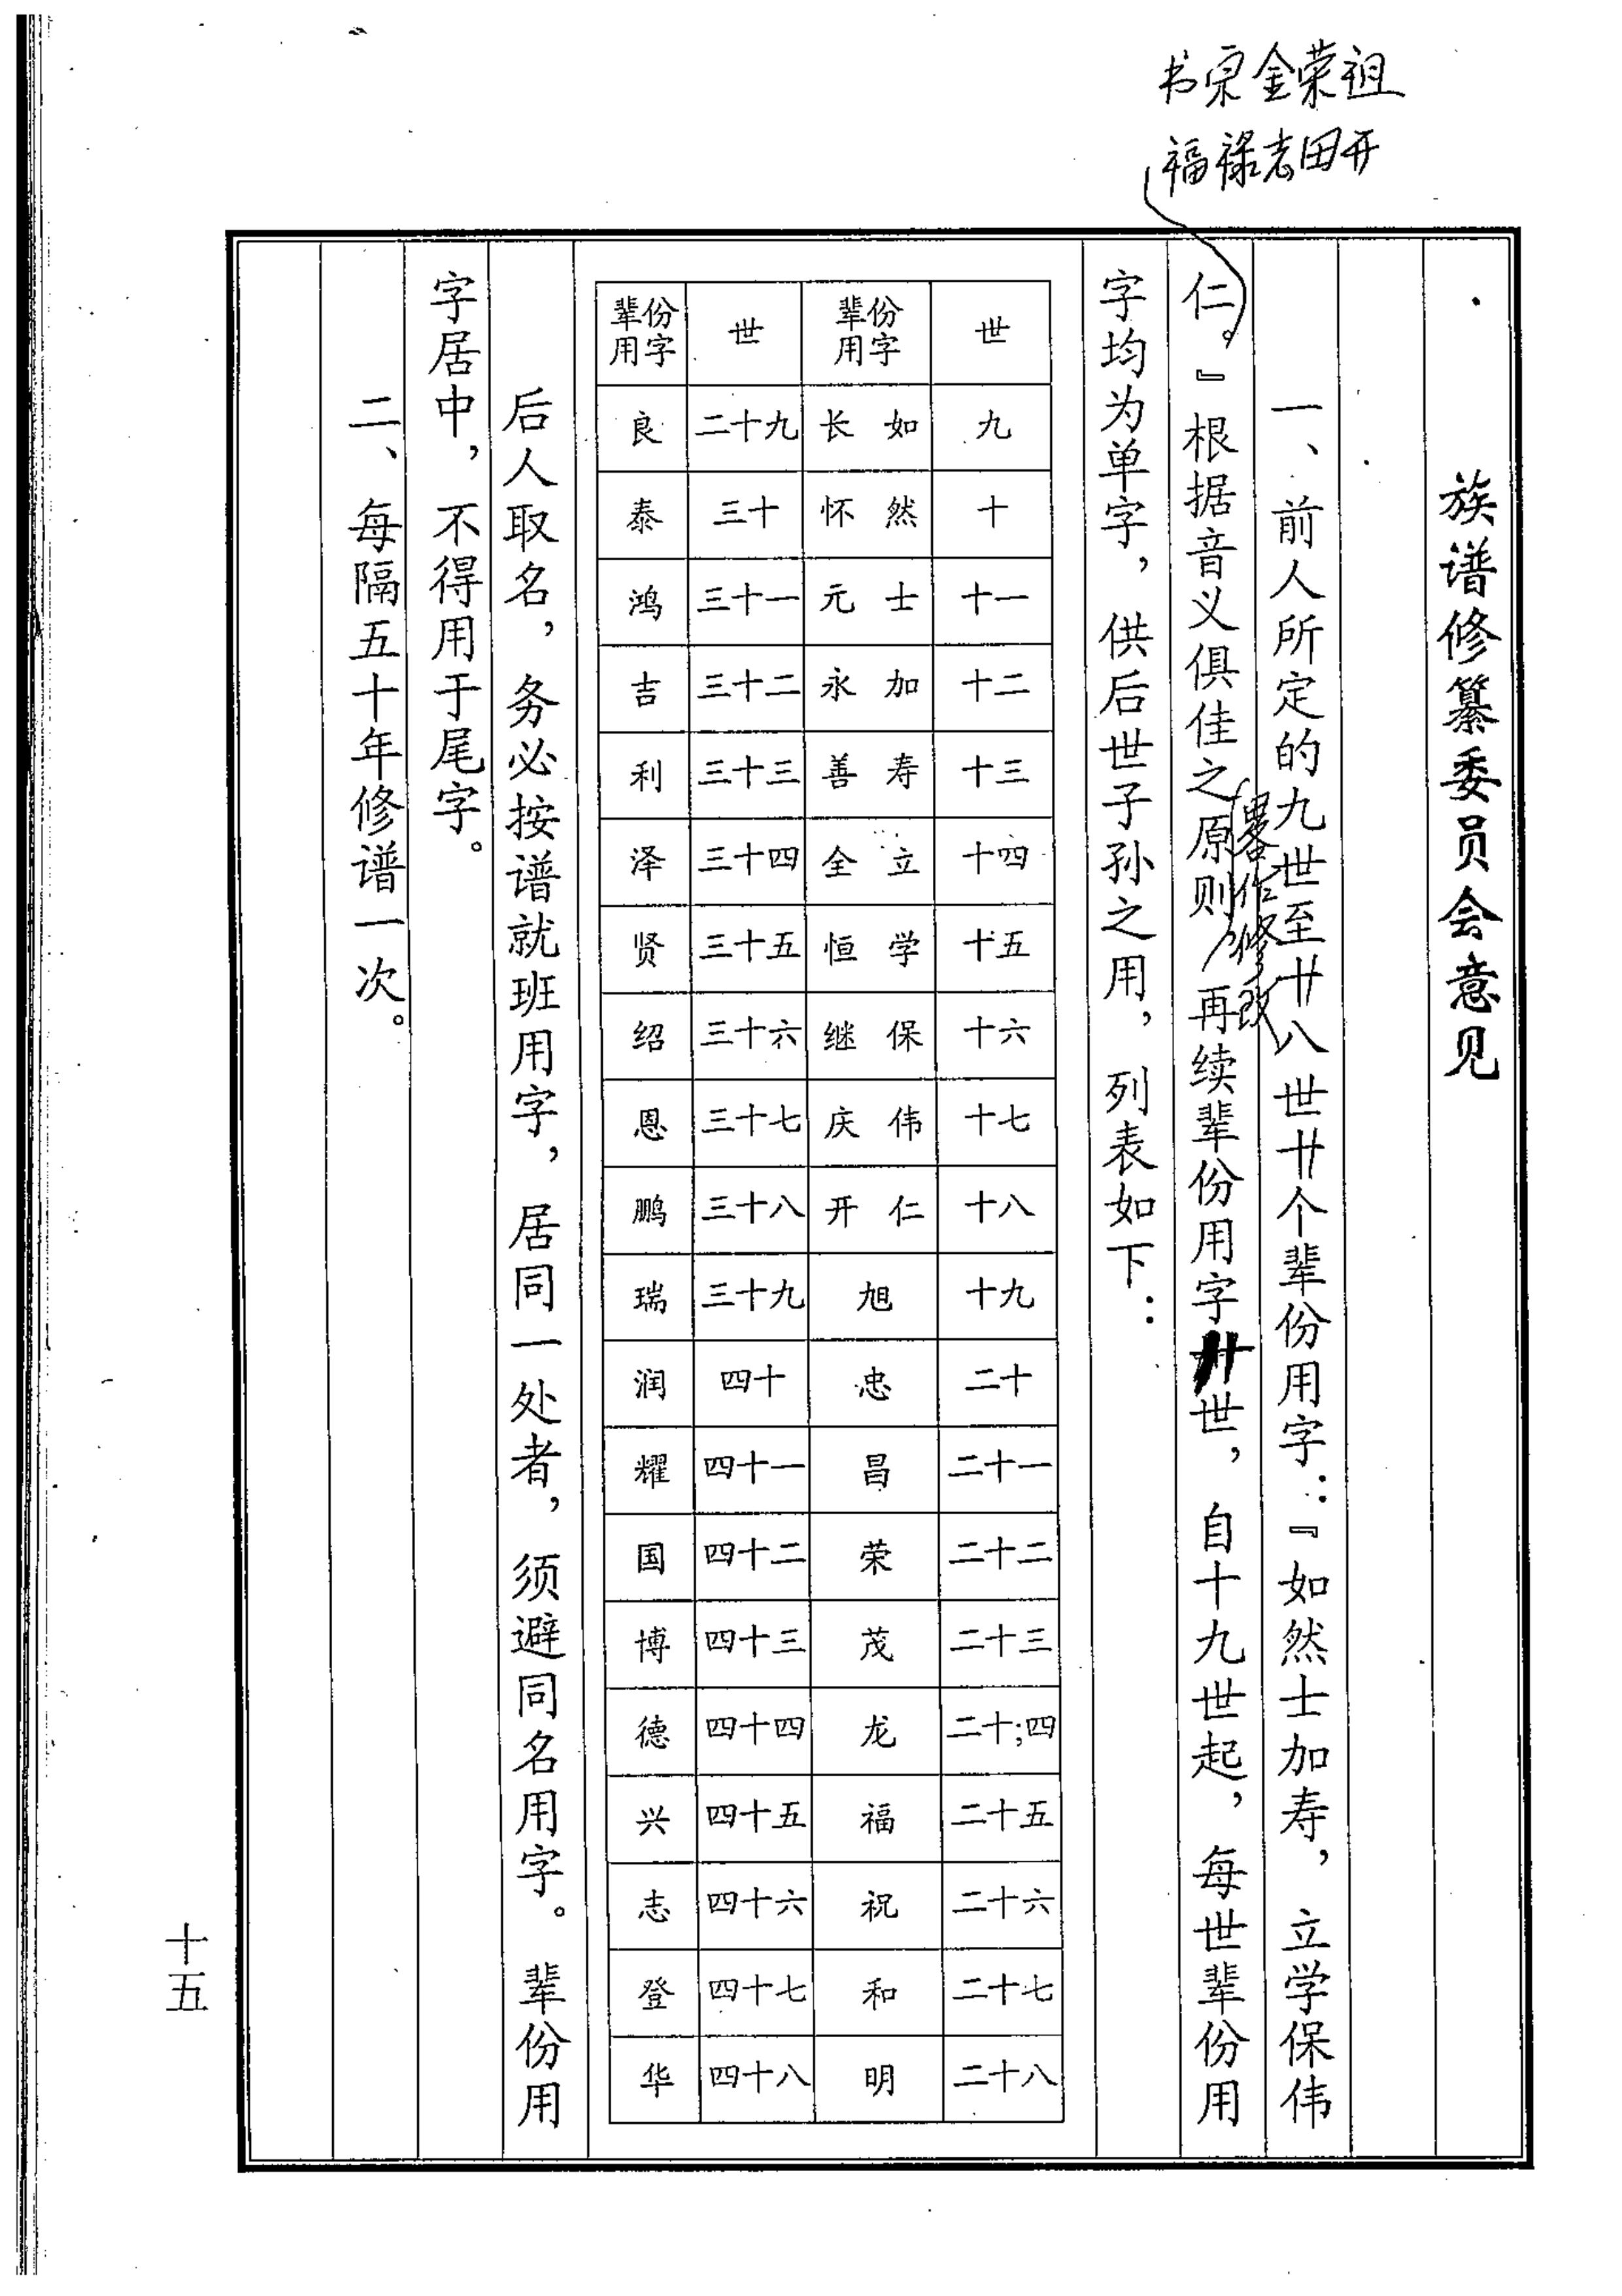 书宗金荣祖
福禄志田开
族谱修纂委员会意见
一、前人所定的九世至廿八世廿个辈份用字：『如然士加寿，立学保伟
仁。』根据音义俱佳之原则，再续辈份用字廿世，自十九世起，每世辈份用
略作修改
字均为单字，供后世子孙之用，列表如下：
世 九 十 十一 十二 十三 十四 十五 十六 十七 十八 十九 二十 二十一 二十二 二十三 二十;四 二十五 二十六 二十七 二十八
辈份用字 如长 然怀 士元 加永 寿善 立全 学恒 保继 伟庆 仁开 旭 忠 昌 荣 茂 龙 福 祝 和 明
世 二十九 三十 三十一 三十二 三十三 三十四 三十五 三十六 三十七 三十八 三十九 四十 四十一 四十二 四十三 四十四 四十五 四十六 四十七 四十八
辈份用字 良 泰 鸿 吉 利 泽 贤 绍 恩 鹏 瑞 润 耀 国 博 德 兴 志 登 华
后人取名，务必按谱就班用字，居同一处者，须避同名用字。辈份用
字居中，不得用于尾字。
二、每隔五十年修谱一次。
十五